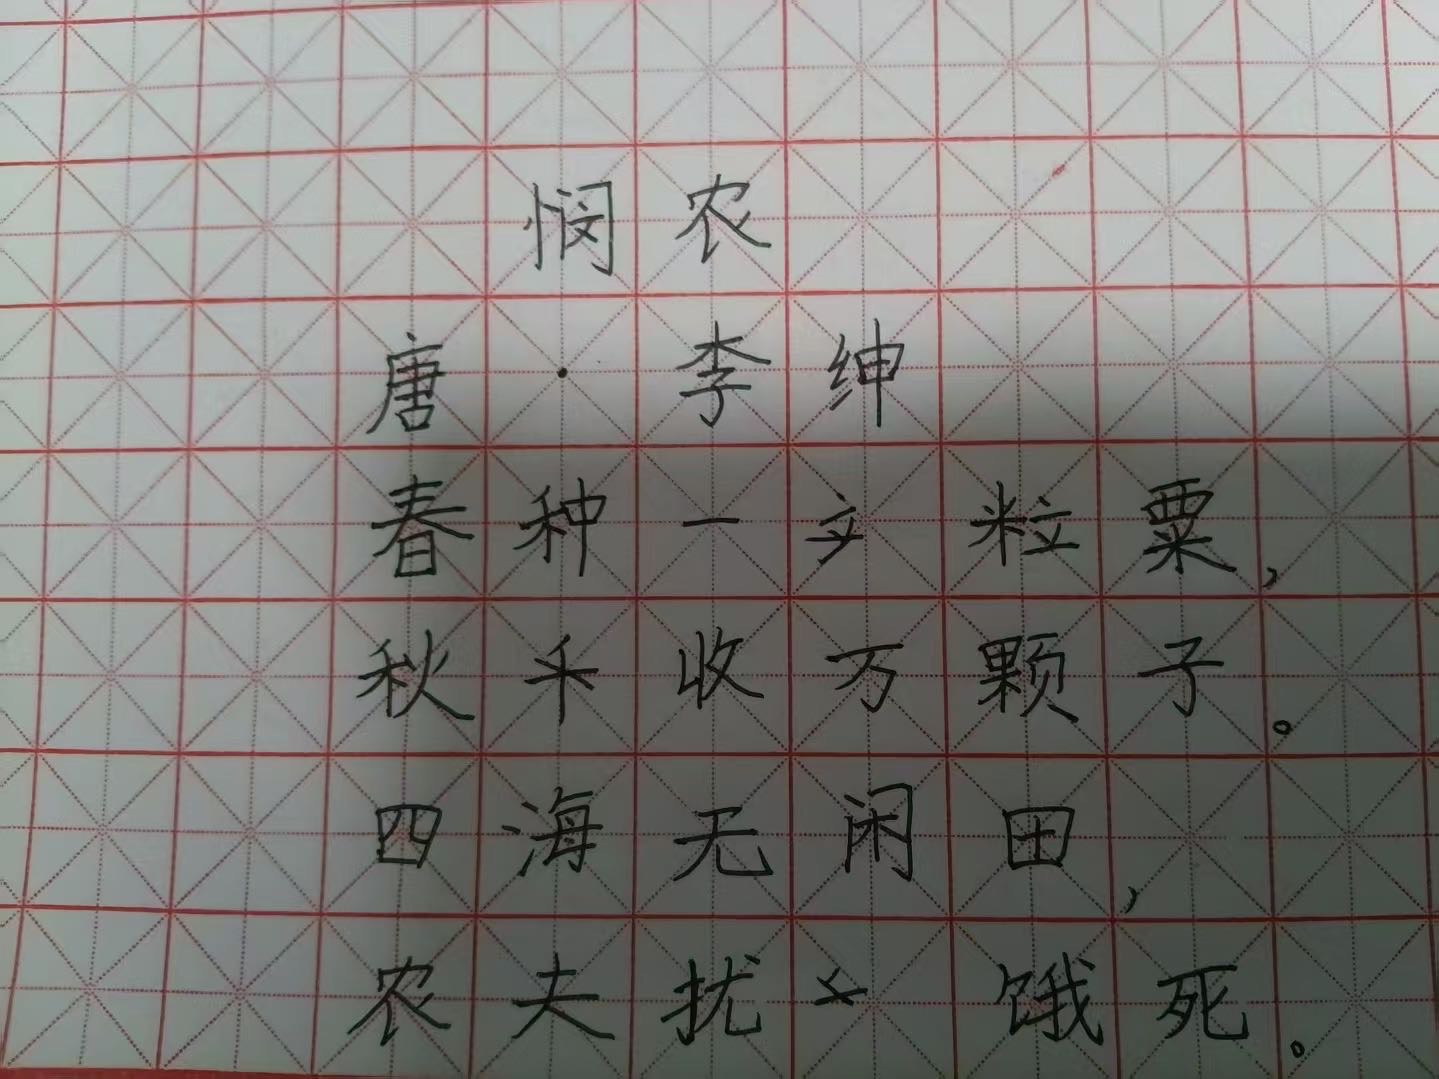 悯农
唐·李绅
春种一粒粟，
秋收万颗子。
四海无闲田，
农夫扰饿死。